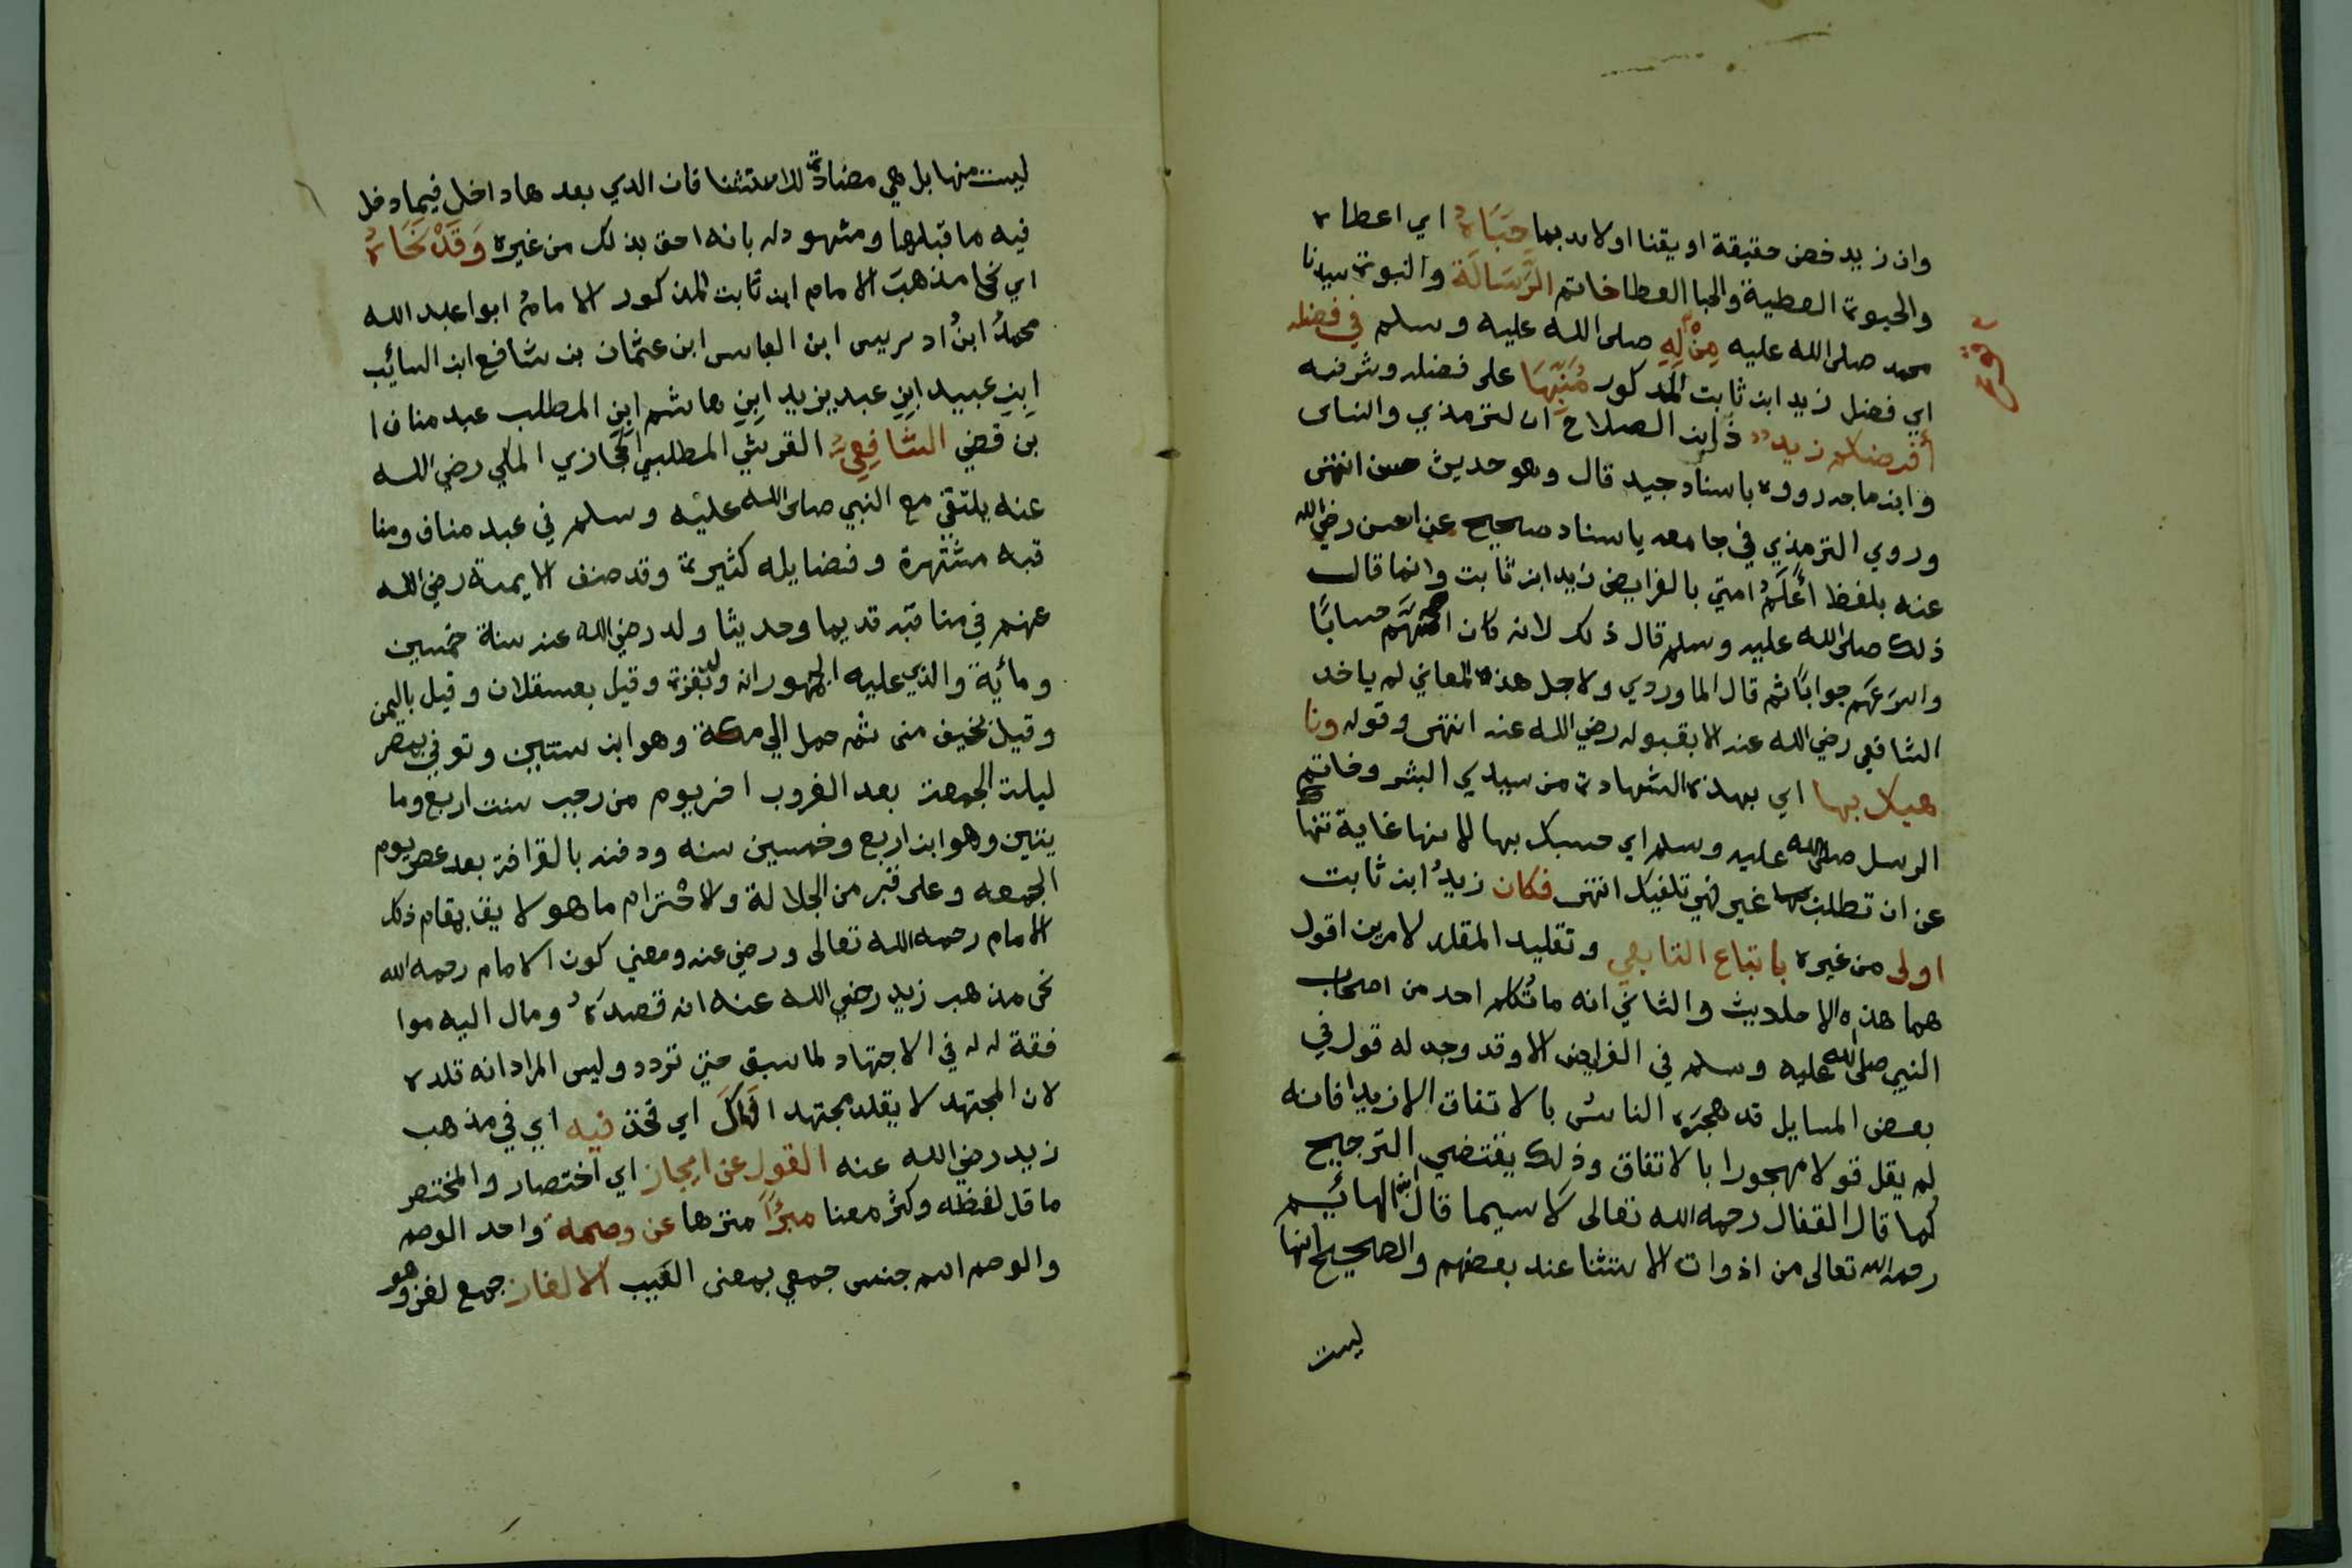 وان زيد خص حقيقة او يقنا اولاد بما حَبَاهُ اي اعطاه
والحبوة العطية والحبا العطا خاتم الرَّسَالَة والنبوة سيدنا
محمد صلى الله عليه مِنْ لِهِ صلى الله عليه وسلم في فضله
اي فضل زيد ابن ثابت المدكور مُنَبِّهَا على فضله وشرفه
أفرضكم زيد ذ ابن الصلاح ان لترمذي والنساى
وابن ماجه رووه باسناد جيد قال وهو حديث حسن انتهى
وروي الترمذي في جامعه باسناد صحيح عن انس رضي الله
عنه بلفظ أَعْلَمُ امتي بالفرايض زيد ابن ثابت وانما قال
ذلك صلى الله عليه وسلم قال ذلك لانه كان اصحهم حسابًا
واسرَعَهم جوابًا ثم قال الماوردي ولاجل هذه المعاني لم ياخد
الشافعي رضي الله عنه الا بقبوله رضي الله عنه انتهى وقوله ونا
هيك بها اي بهذه الشهادة من سيدي البشر وخاتم
الرسل صلى الله عليه وسلم اي حسبك بها لانها غاية تنها
عن ان تطلب غيرفهي تلفيك انتهى فكان زيدُ ابن ثابت
اولى من غيره باتباع التابعي وتقليد المقلد لامرين اقول
هما هذه الاحلديث والثاني انه ما تُكلم احد من اصحاب
النبي صلى الله عليه وسلم في الفرايض الا وقد وجد له قول في
بعض المسايل قد هجرَه الناسُ بالاتفاق الا زيدا فانه
لم يقل قولا مهجورا بالاتفاق وذلك يقتضي الترجيح
كما قال القفال رحمه الله تعالى لَا سيما قال ابن الهائم
رحمه الله تعالى من اذوات الاستثنا عند بعضهم والصحيح انها
ليست
ليست منها بل هي مضادة للاستثنا فان الدي بعدها داخل فيما دخل
فيه ما قبلها ومشهود له بانه احق بذلك من غيره وَقَدْ نَحَاهُ
اي نحا مذهبَ الامام ابن ثابت المدكور الامامُ ابوا عبد الله
محمدُ ابنُ ادريس ابن العباس ابن عثمان بن شافع ابن السائب
ابنِ عبيد ابنِ عبد يزيد ابنِ هاشم ابنِ المطلب عبد مناف ا
بن قصي الشافِعِيُّ القرشي المطلبي الحجازي المكي رضي الله
عنه يلتقي مع النبي صلى الله عليه وسلم في عبد مناف ومنا
قبه مشتهرة وفضايله كثيرة وقد صنف الايمة رضي الله
عنهم في مناقبه قديما وحديثا ولد رضي الله عنه سنة خمسين
ومائة والذي عليه الجمهور انه ولد بغزة وقيل بعسقلان وقيل باليمن
وقيل بخيف منى ثم حمل الي مكة وهو ابن سنتين وتوفي بمصر
ليلت الجمعة بعد الغروب اخر يوم من رجب سنت اربع وما
يتين وهو ابن اربع وخمسين سنه ودفن بالقرافة بعد عصر يوم
الجمعه وعلى قبره من الجلالة ولاحْترام ما هو لايق بمقام ذلك
الامام رحمه الله تعالى ورضي عنه ومعني كون الامام رحمه الله
نحى مذهب زيد رضي الله عنه انه قصدَهُ ومال اليه موا
فقة له له في الاجتهاد لما سبق حتي تردد وليس المراد انه قلده
لان المجتهد لا يقلد مجتهدا اي فخذ فيه اي في مذهب
زيد رضي الله عنه القول عن ايجاز اي اختصار والمختصر
ما قل لفظه وكثر معنا مبرُّأً منزها عن وصمة واحد الوصم
والوصم اسم جنس جمعي بمعنى العَيب الالغاز جمع لغز وهو